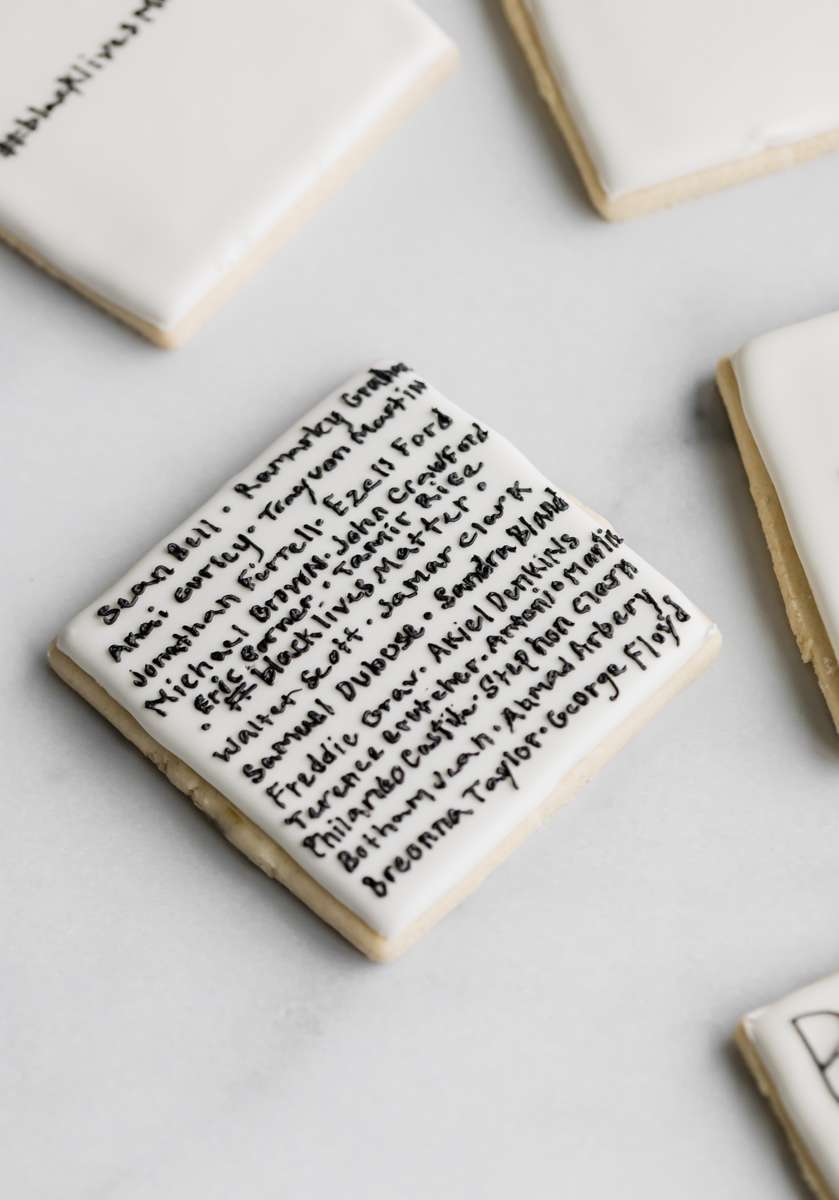 #blacklivesM
Sean Bell · Ramarley Graham
Akai Gurley · Trayvon Martin
Jonathan Ferrell · Ezell Ford
Michael Brown · John Crawford
Eric Garner · Tamir Rice
· #blacklivesMatter ·
Walter Scott · Jamar Clark
Samuel Dubose · Sandra Bland
Freddie Gray · Akiel Denkins
Terence Crutcher · Antonio Martin
Philando Castile · Stephon Clark
Botham Jean · Ahmad Arbery
Breonna Taylor · George Floyd